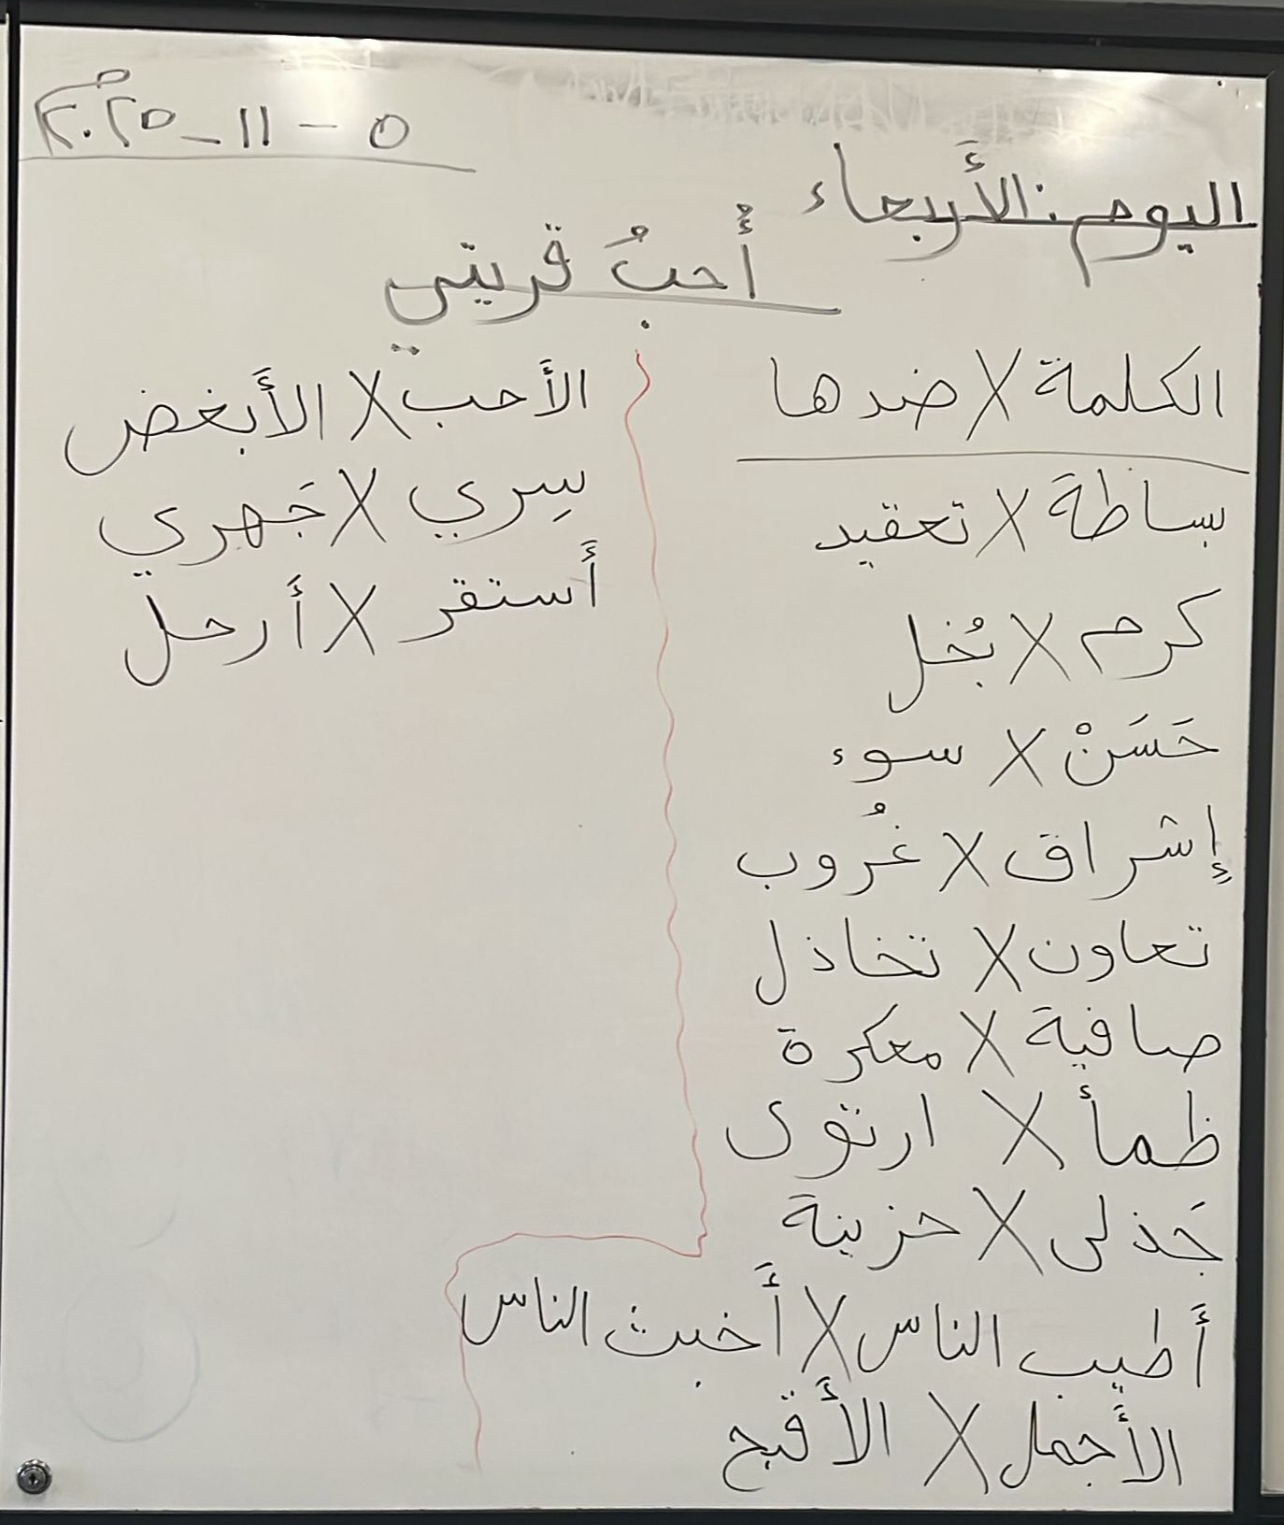 ٥ - ١١ - ٢٠٢٥م
اليوم: الأَربعاء
أُحبُ قريتي
الكلمة X ضدها
بساطة X تعقيد
كرم X بُخل
حَسَنْ X سوء
إِشراق X غُروب
تعاون X تخاذل
صافية X معكرة
ظمأ X ارتوى
جَذلى X حزينة
أَطيب الناس X أَخبث الناس
الأَجمل X الأَقبح
الأَحب X الأَبغض
سِري X جَهري
أَستقر X أَرحل